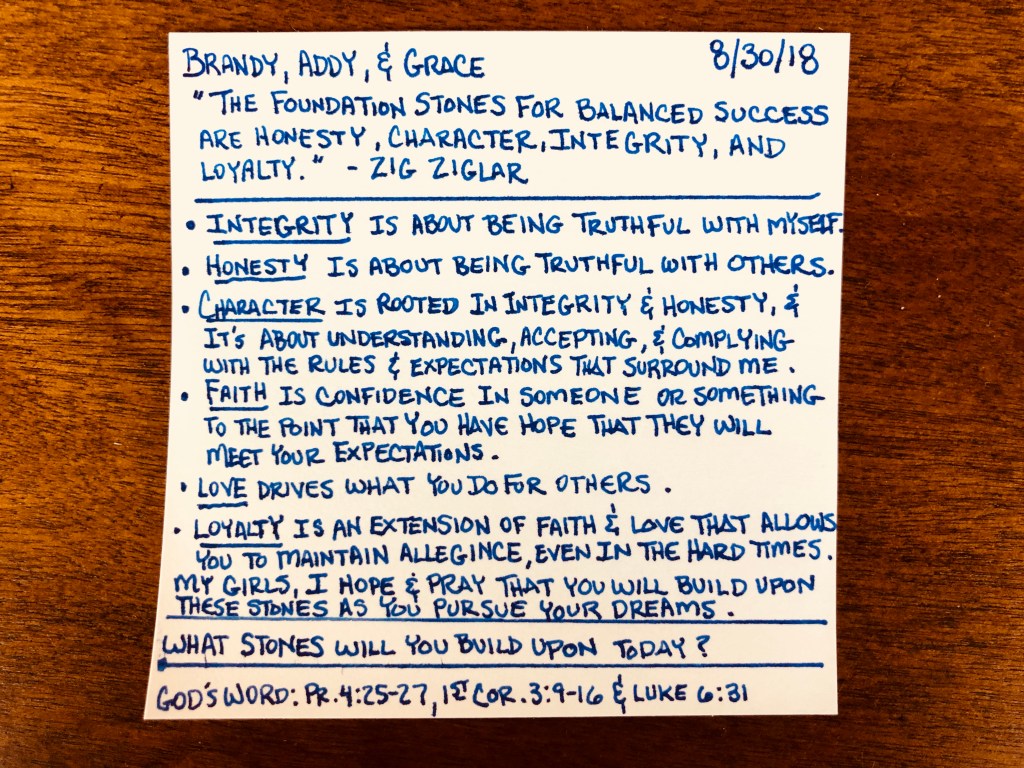 BRANDY, ADDY, & GRACE 8/30/18
"THE FOUNDATION STONES FOR BALANCED SUCCESS
ARE HONESTY, CHARACTER, INTEGRITY, AND
LOYALTY." - ZIG ZIGLAR
• INTEGRITY IS ABOUT BEING TRUTHFUL WITH MYSELF.
• HONESTY IS ABOUT BEING TRUTHFUL WITH OTHERS.
• CHARACTER IS ROOTED IN INTEGRITY & HONESTY, &
IT'S ABOUT UNDERSTANDING, ACCEPTING, & COMPLYING
WITH THE RULES & EXPECTATIONS THAT SURROUND ME.
• FAITH IS CONFIDENCE IN SOMEONE OR SOMETHING
TO THE POINT THAT YOU HAVE HOPE THAT THEY WILL
MEET YOUR EXPECTATIONS.
• LOVE DRIVES WHAT YOU DO FOR OTHERS.
• LOYALTY IS AN EXTENSION OF FAITH & LOVE THAT ALLOWS
YOU TO MAINTAIN ALLEGINCE, EVEN IN THE HARD TIMES.
MY GIRLS, I HOPE & PRAY THAT YOU WILL BUILD UPON
THESE STONES AS YOU PURSUE YOUR DREAMS.
WHAT STONES WILL YOU BUILD UPON TODAY?
GOD'S WORD: PR. 4:25-27, 1ST COR. 3:9-16 & LUKE 6:31